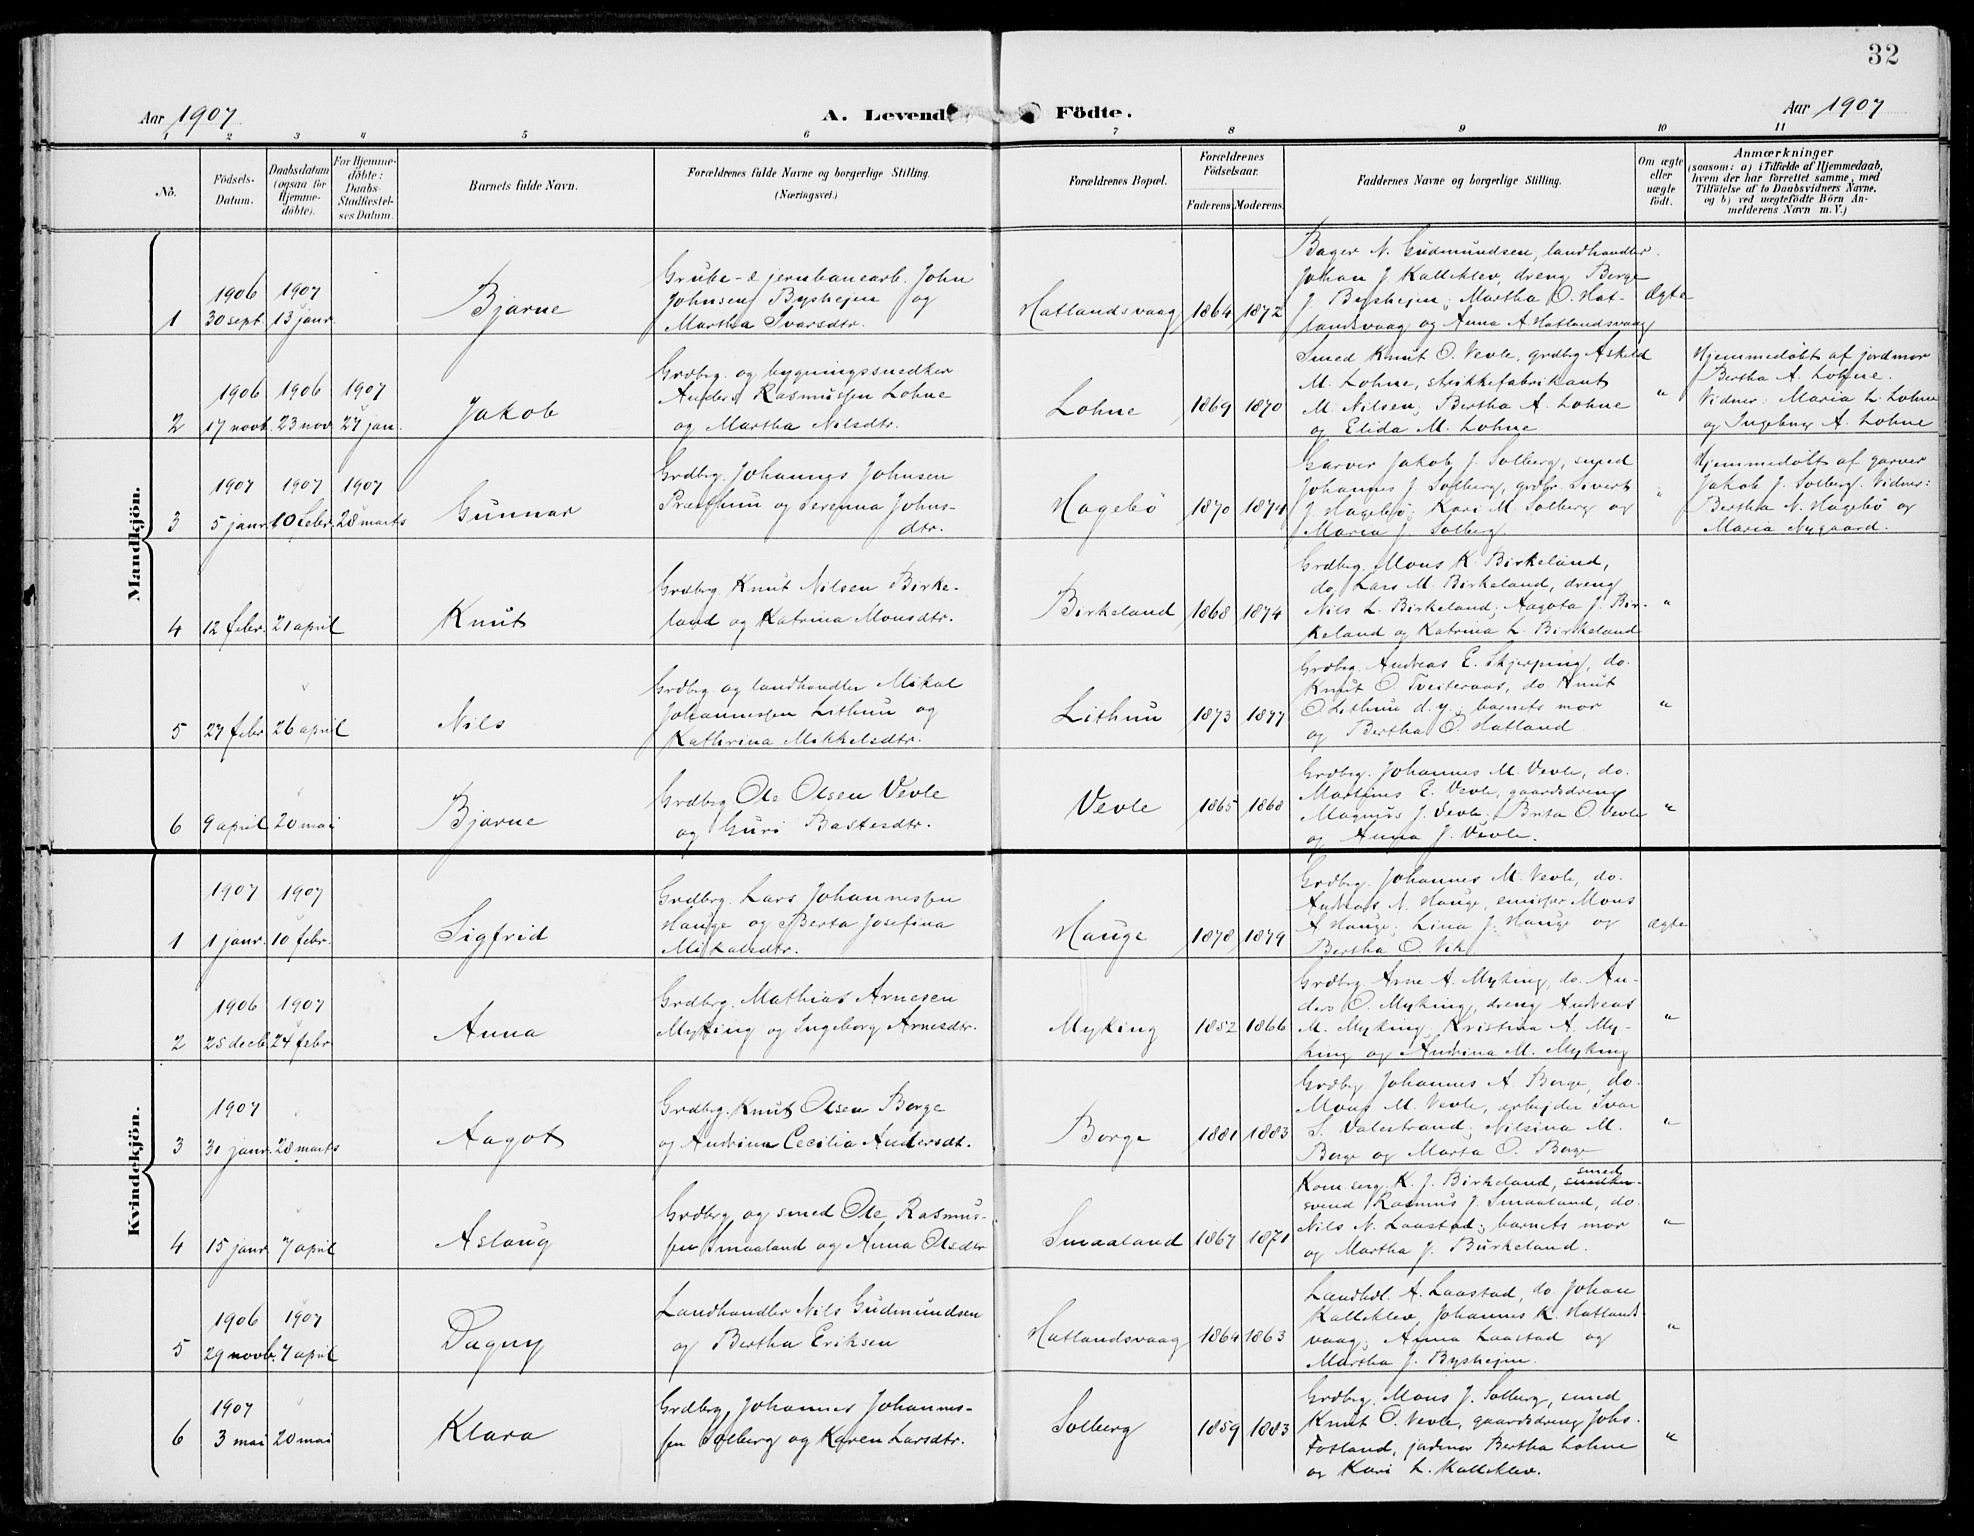 32
Aar 1907
A. Levend
Födte.
Aar 1907
1 2 3 4 5 6 7 8 9 10 11
No.
Födsels-Datum.
Daabsdatum (ogsaa for Hjemme-döbte).
For Hjemme-döbte: Daabs-Stadfæstel-ses Datum.
Barnets fulde Navn.
Forældrenes fulde Navne og borgerlige Stilling. (Næringsvei.)
Forældrenes Bopæl.
Forældrenes Födselsaar.
Faderens. Moderens.
Faddernes Navne og borgerlige Stilling.
Om ægte eller uægte födt.
Anmærkninger
(saasom: a) i Tilfælde af Hjemmedaab,
hvem der har forrettet samme, med
Tilföielse af to Daabsvidners Navne,
og b) ved uægtefödte Börn An-
melderens Navn m. V.)
Mandkjön.
1
1906 30 sept.
1907 13 janr.
Bjarne
Grube- & jernbanearb. John
Johnsen Byshejen og
Martha Ivarsdtr.
Hatlandsvaag
1864 1872
Bager N. Gudmundsen, landhandler
Johan J. Kalleklev, dreng Berge
J. Byshejen; Martha O. Hat-
landsvaag og Anna A. Hatlandsvaag
Ægte
2
1906 17 novb.
1906 23 nov.
1907 27 jan.
Jakob
Grdbrg. og bygningssnedker
Anders Rasmussen Lohne
og Martha Nilsdtr.
Lohne
1869 1870
Smed Knut O. Vevle, grdbrg Askild
M. Lohne, strikkefabrikant
M. Nilsen; Bertha A. Lohne
og Elida M. Lohne
"
Hjemmedøbt af jordmor
Bertha A. Lohne.
Vidner: Maria L. Lohne
og Ingebrg A. Lohne
3
1907 5 janr.
1907 10 febr.
1907 28 marts
Gunnar
Grdbrg. Johannes Johnsen
Præsthun og Serenna Johns-
dtr.
Hagebö
1870 1874
Garver Jakob J. Solberg, smed
Johannes J. Solberg, grdbr. Sivert
J. Hagebø; Kari M. Solberg og
Maria J. Solberg
"
Hjemmedøbt af garver
Jakob J. Solberg. Vidner:
Bertha N. Hagebø og
Maria Nygaard.
4
12 febr. 21 april
Knut
Grdbrg Knut Nilsen Birke-
land og Katrina Monsdtr.
Birkeland
1868 1874
Grdbrg. Mons K. Birkeland,
do, Lars M. Birkeland, dreng
Nils L. Birkeland; Aagota J. Bir-
keland og Katrina L. Birkeland
"
5
27 febr. 26 april
Nils
Grdbrg. og landhandler Mikal
Johannessen Lithun og
Kathrina Mikkelsdtr.
Lithun
1873 1877
Grdbrg. Andreas E. Skjerping, do.
Knut O. Tveiteraas, do Knut
O Lithun d. y.; barnets mor
og Bertha O. Hatland.
"
6
9 april 20 mai
Bjarne
Grdbrg Ole Olsen Vevle
og Guri Bastesdtr.
Vevle
1865 1868
Grdbrg. Johannes M. Vevle, do.
Martines E. Vevle, gaardsdreng
Magnus J. Vevle; Brita O. Vevle
og Anna J. Vevle.
"
Kvindekjön.
1
1907 1 janr.
1907 10 febr.
Sigfrid
Grdbrg. Lars Johannessen
Hauge og Berta Josefina
Mikalsdtr.
Hauge
1878 1879
Grdbrg. Johannes M. Vevle, do.
Andreas N. Hauge, emissær Mons
A Hauge; Lina J. Hauge og
Bertha O. Vik
ægte
2
1906 25 decb.
1907 24 febr
Anna
Grdbrg. Mathias Arnesen
Myking og Ingeborg Arnesdtr.
Myking
1852 1866
Grdbrg Arne A. Myking, do. An-
ders O. Myking, dreng Andreas
M. Myking, Kristina A. My-
king og Andrina M. Myking
"
3
1907 31 janr. 28 marts
Aagot
Grdbrg. Knut Olsen Borge
og Andrina Cecilia Andersdt.
Borge
1881 1883
Grdbrg. Johannes A. Borge, do.
Mons M. Vevle, arbejder Ivar
S. Valestrand; Nilsina M.
Borge og Marta O. Borge
"
4
15 janr. 7 april
Aslaug
Grdbrg og smed Ole Rasmus-
sen Smaaland og Anna Olsdtr
Smaaland
1867 1871
Kom.serg. K. J. Birkeland, smed
svend Rasmus J. Smaaland, do.
Nils N. Laastad; barnets mor
og Martha J. Birkeland.
"
5
1906 29 novb.
1907 7 april
Dagny
Landhandler Nils Gudmundsen
og Bertha Eriksen
Hatlandsvaag
1864 1863
Landhdl. A. Laastad, do. Johan
Kalleklev, Johannes K. Hatlands-
vaag; Anna Laastad og
Martha J. Byshejen.
"
6
1907 3 mai 20 mai
Klara
Grdbrg. Johannes Johannes-
sen Solberg og Karen Larsdtr.
Solberg
1859 1883
Grdbrg. Mons J. Solberg, smed
Knut O. Vevle, gaardsdreng Johs.
Fosland, jordmor Bertha Lohne
og Kari L. Kalleklev.
"